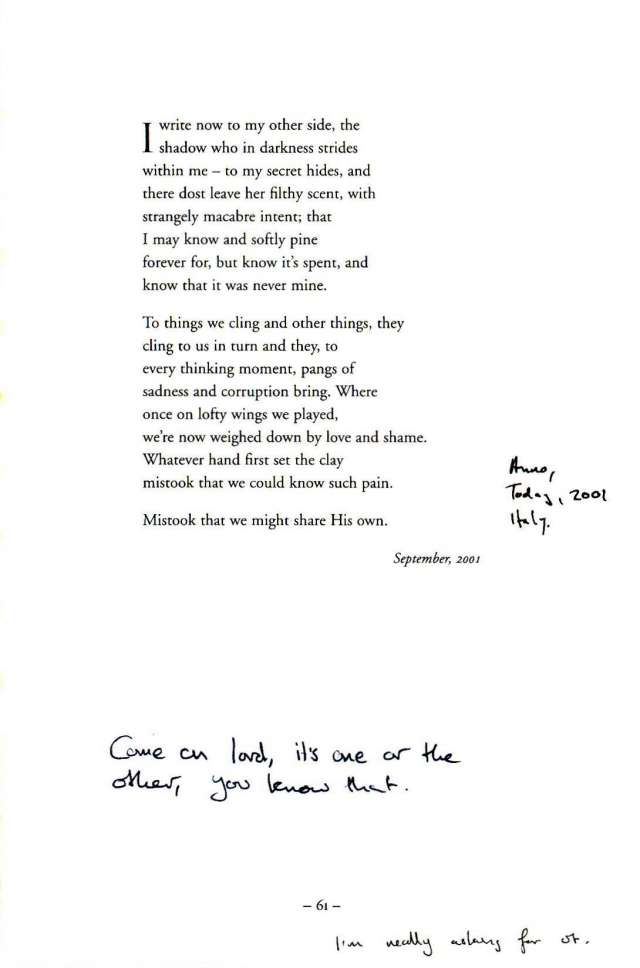 I write now to my other side, the
shadow who in darkness strides
within me – to my secret hides, and
there dost leave her filthy scent, with
strangely macabre intent; that
I may know and softly pine
forever for, but know it's spent, and
know that it was never mine.
To things we cling and other things, they
cling to us in turn and they, to
every thinking moment, pangs of
sadness and corruption bring. Where
once on lofty wings we played,
we're now weighed down by love and shame.
Whatever hand first set the clay
mistook that we could know such pain.
Mistook that we might share His own.
September, 2001
Anno,
Today, 2001
Italy.
Come on lord, it's one or the
other, you know that.
– 61 –
I'm really asking for it.